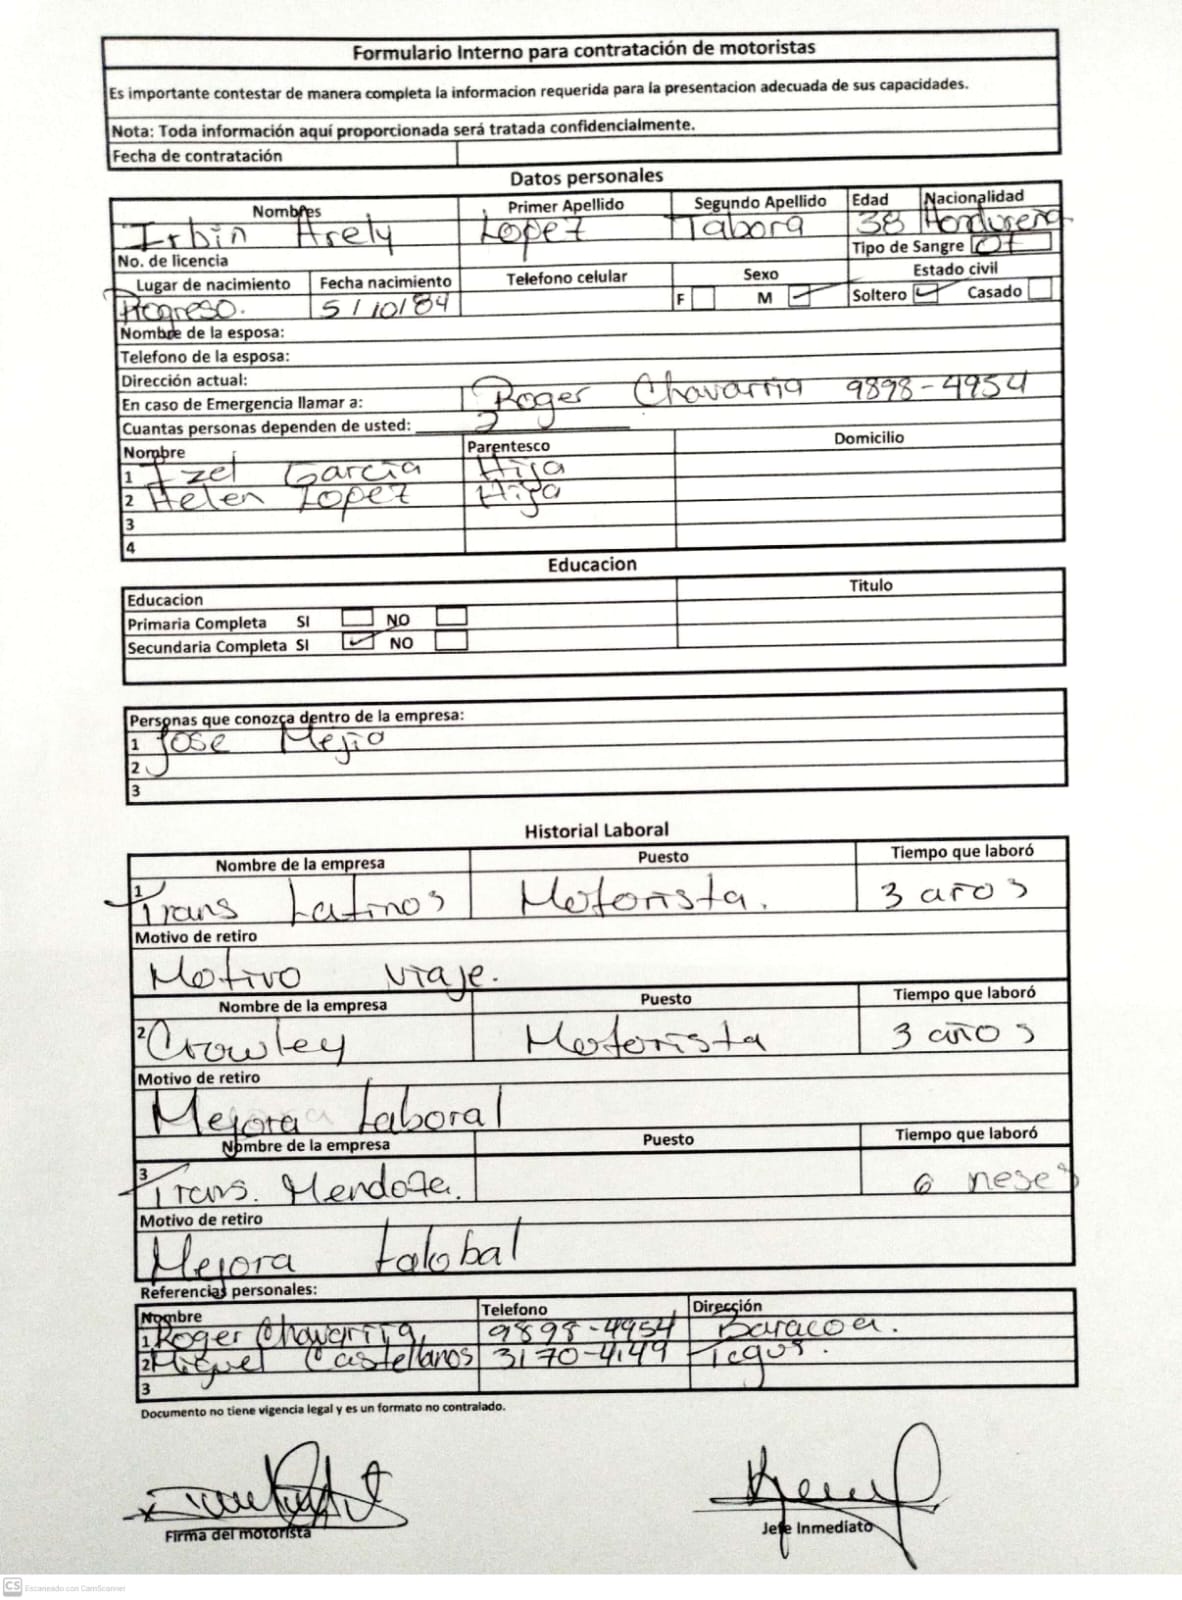 Formulario Interno para contratación de motoristas
Es importante contestar de manera completa la informacion requerida para la presentacion adecuada de sus capacidades.
Nota: Toda información aquí proporcionada será tratada confidencialmente.
Fecha de contratación
Datos personales
Nombres Primer Apellido Segundo Apellido Edad Nacionalidad
Irbin Arely Lopez Tabora 38 Hondureña
No. de licencia Tipo de Sangre
Lugar de nacimiento Fecha nacimiento Telefono celular Sexo Estado civil
Progreso. 5/10/84 F M Soltero Casado
Nombre de la esposa:
Telefono de la esposa:
Dirección actual:
En caso de Emergencia llamar a: Roger Chavarria 9898-4954
Cuantas personas dependen de usted: 2
Nombre Parentesco Domicilio
1 Izel Garcia Hija
2 Helen Lopez Hija
3
4
Educacion
Educacion Titulo
Primaria Completa SI NO
Secundaria Completa SI NO
Personas que conozca dentro de la empresa:
1 Jose Mejia
2
3
Historial Laboral
Nombre de la empresa Puesto Tiempo que laboró
1 Trans Latinos Motorista. 3 años
Motivo de retiro
Motivo viaje.
Nombre de la empresa Puesto Tiempo que laboró
2 Crowley Motorista 3 años
Motivo de retiro
Mejora Laboral
Nombre de la empresa Puesto Tiempo que laboró
3 Trans. Mendoza. 6 meses
Motivo de retiro
Mejora Lalobal
Referencias personales:
Nombre Telefono Dirección
1 Roger Chavarria 9898-4954 Baracoa.
2 Miguel Castellanos 3170-4149 Tegus.
3
Documento no tiene vigencia legal y es un formato no contralado.
Firma del motorista Jefe Inmediato
CS Escaneado con CamScanner